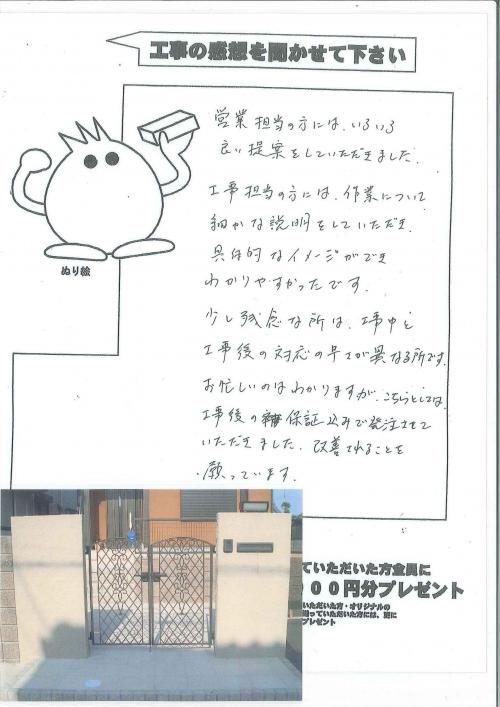 工事の感想を聞かせて下さい
営業担当の方には、いろいろ
良い提案をしていただきました。
工事担当の方には、作業について
細かな説明をしていただき、
具体的なイメージができ
わかりやすかったです。
少し残念な所は、工事中と
工事後の対応の早さが異なる所です。
お忙しいのはわかりますが、こちらとしては、
工事後の保証込みで発注させて
いただきました。改善されることを
願っています。
ぬり絵
ていただいた方全員に
００円分プレゼント
いただいた方・オリジナルの
送っていただいた方には、更に
プレゼント